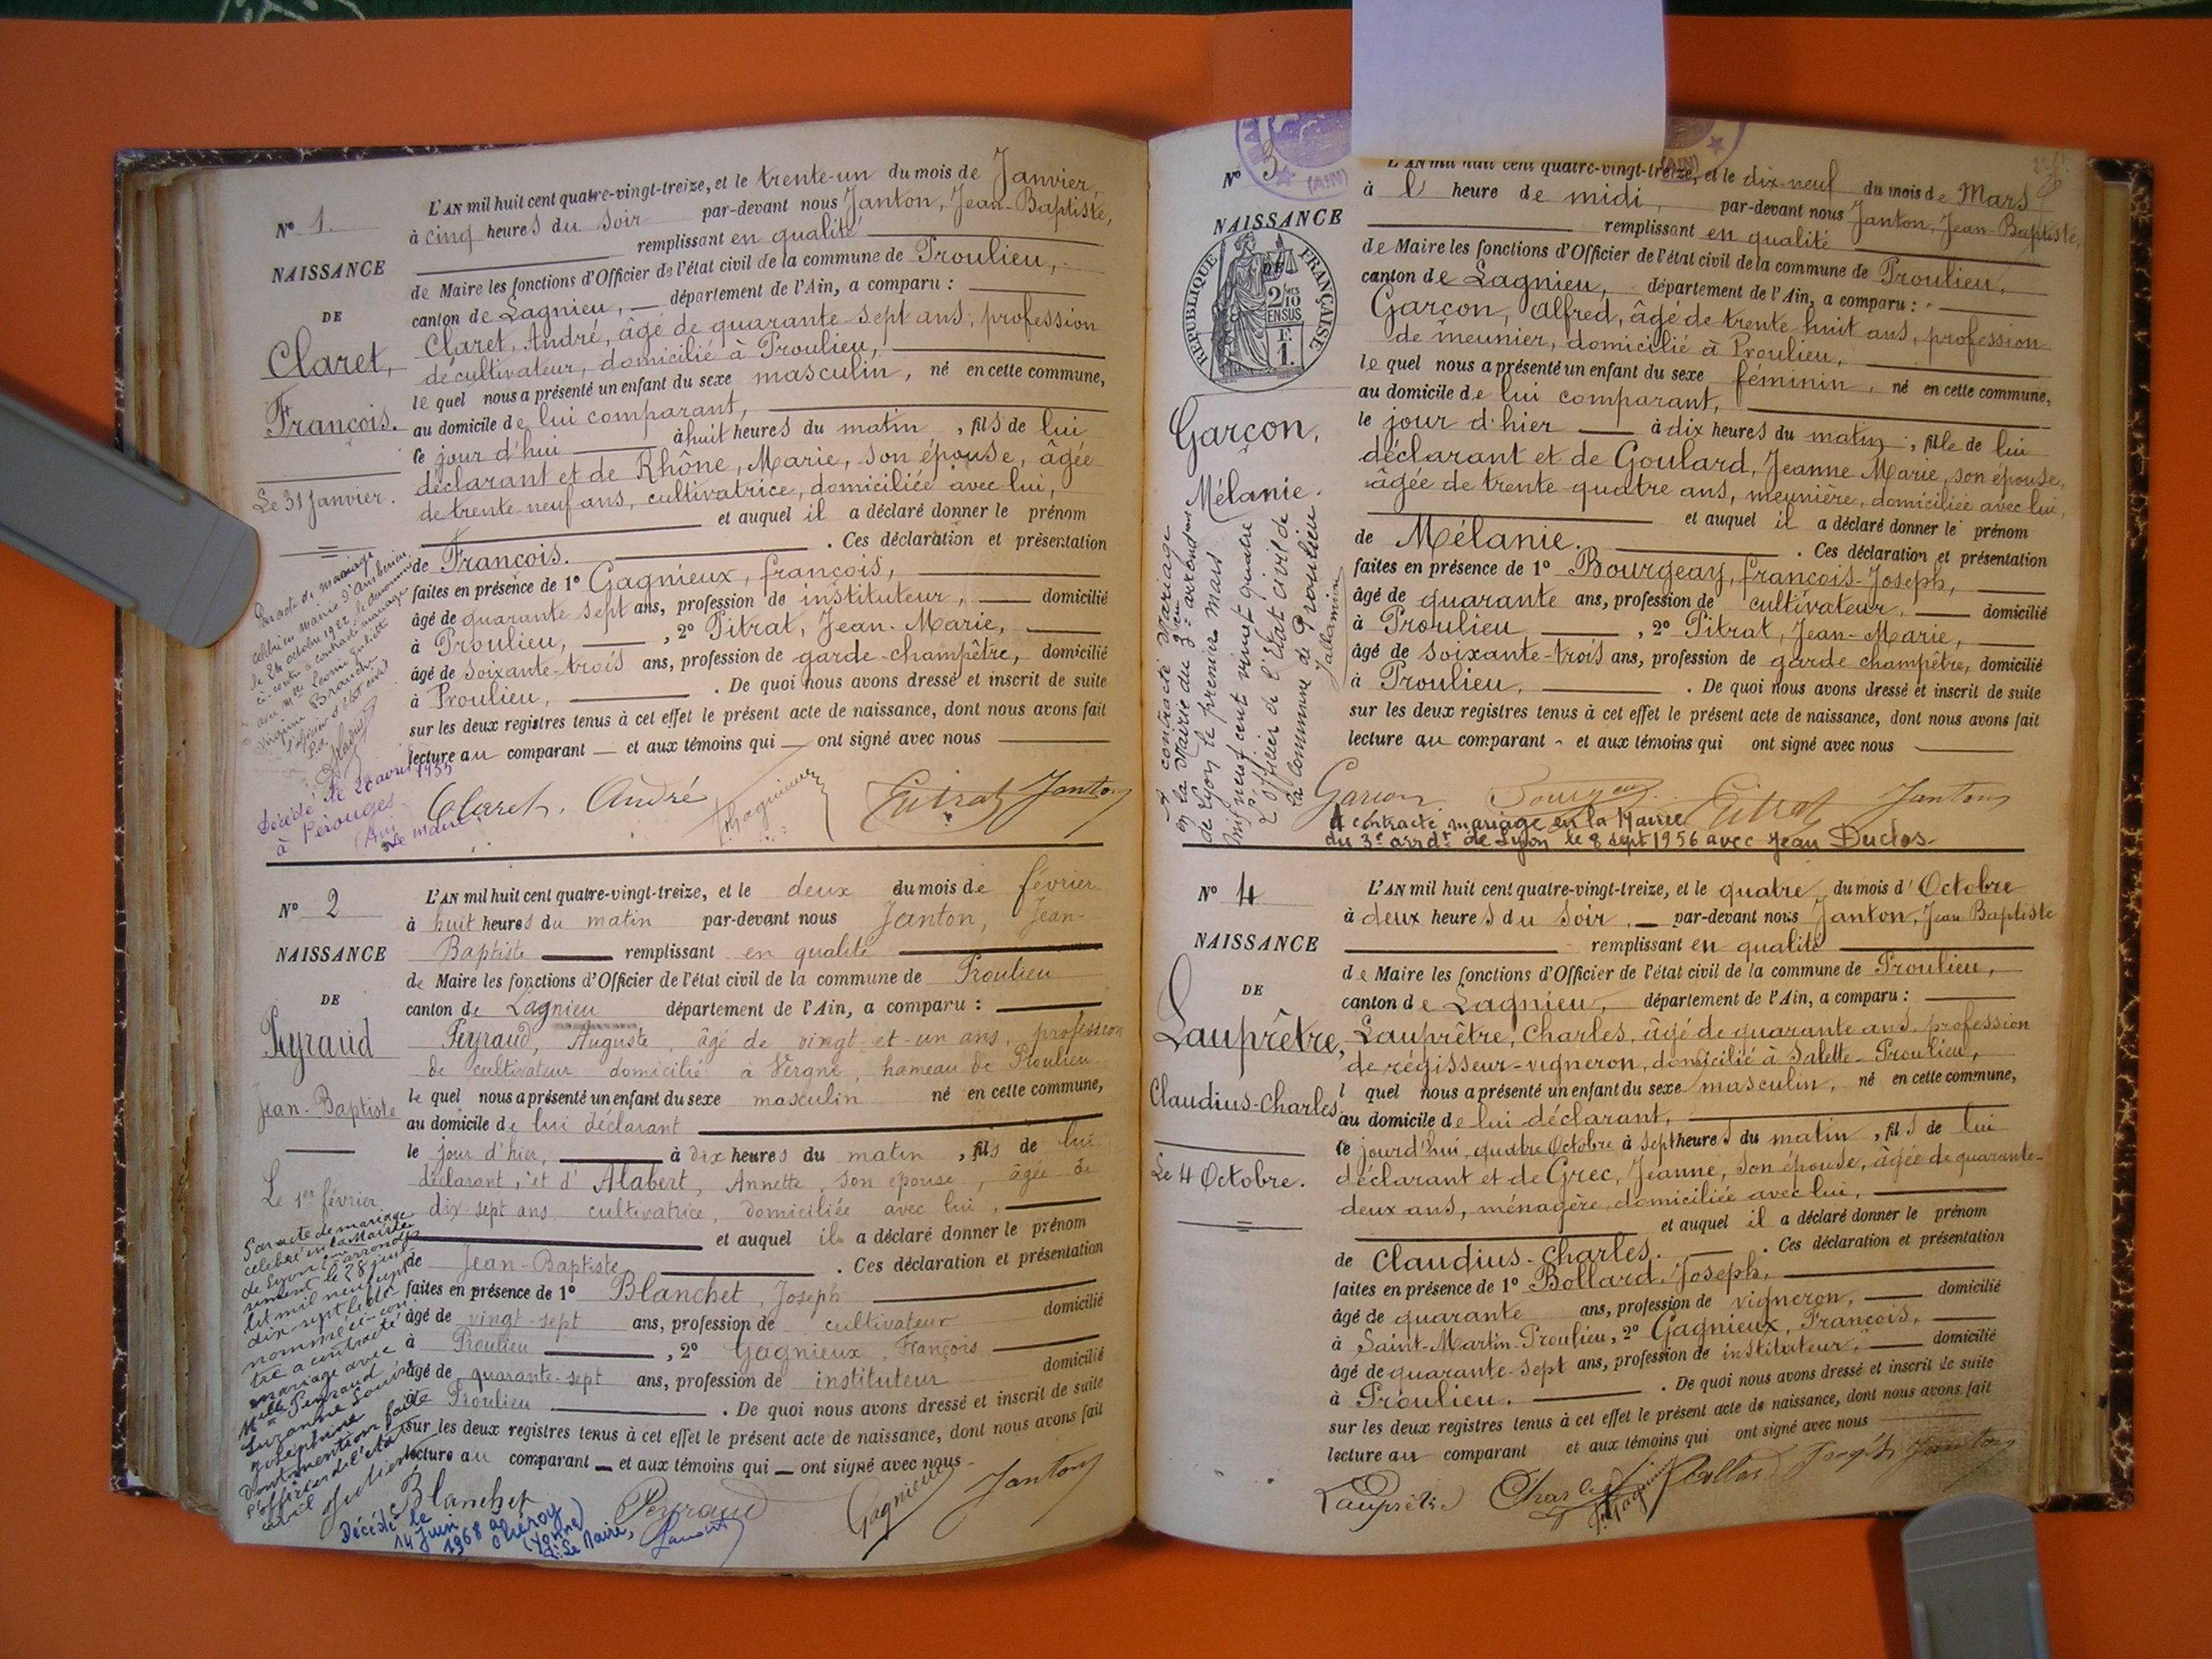 L'AN mil huit cent quatre-vingt-treize, et le trente-un du mois de Janvier,
N° 1. à cinq heures du soir par-devant nous Janton, Jean-Baptiste,
remplissant en qualité
NAISSANCE de Maire les fonctions d'Officier de l'état civil de la commune de Proulieu,
DE canton de Lagnieu, département de l'Ain, a comparu :
Claret, André, âgé de quarante sept ans, profession
Claret, de cultivateur, domicilié à Proulieu,
le quel nous a présenté un enfant du sexe masculin, né en cette commune,
François. au domicile de lui comparant,
le jour d'hui à huit heures du matin, fils de lui
déclarant et de Rhône, Marie, son épouse, âgée
Le 31 Janvier. de trente neuf ans, cultivatrice, domiciliée avec lui,
et auquel il a déclaré donner le prénom
de François. Ces déclaration et présentation
faites en présence de 1° Gagnieux, françois,
âgé de quarante sept ans, profession de instituteur, domicilié
à Proulieu, , 2° Pitrat, Jean-Marie,
âgé de soixante-trois ans, profession de garde-champêtre, domicilié
à Proulieu, . De quoi nous avons dressé et inscrit de suite
sur les deux registres tenus à cet effet le présent acte de naissance, dont nous avons fait
lecture au comparant et aux témoins qui ont signé avec nous
Par acte de mariage
célébré en Mairie d'Ambérieu
le 24 octobre 1922 le dénommé
ci-contre a contracté mariage
avec Mlle Léonie
Virginie
l'officier d'état civil
Décédé le 28 avril 1955
à Pérouges
(Ain)
Le maire
Claret, André Gagnieux Pitrat Janton
L'AN mil huit cent quatre-vingt-treize, et le deux du mois de février
N° 2 à huit heures du matin par-devant nous Janton, Jean-
NAISSANCE Baptiste remplissant en qualité
de Maire les fonctions d'Officier de l'état civil de la commune de Proulieu
DE canton de Lagnieu département de l'Ain, a comparu :
Peyraud Peyraud, Auguste, âgé de vingt-et-un ans, profession
de cultivateur domicilié à Vergne, hameau de Proulieu
Jean-Baptiste le quel nous a présenté un enfant du sexe masculin né en cette commune,
au domicile de lui déclarant
le jour d'hier, à dix heures du matin, fils de lui
déclarant, et d'Alabert, Annette, son épouse, âgée de
Le 1er février dix-sept ans, cultivatrice, domiciliée avec lui,
et auquel il a déclaré donner le prénom
de Jean-Baptiste . Ces déclaration et présentation
faites en présence de 1° Blanchet, Joseph
âgé de vingt-sept ans, profession de cultivateur domicilié
à Proulieu , 2° Gagnieux, François
âgé de quarante-sept ans, profession de instituteur domicilié
à Proulieu . De quoi nous avons dressé et inscrit de suite
sur les deux registres tenus à cet effet le présent acte de naissance, dont nous avons fait
lecture au comparant et aux témoins qui ont signé avec nous
Par acte de mariage
célébré en la Mairie
de Lyon arrondis
sement le 28 juil
let mil neuf cent
dix-sept le dé
nommé ci-con
tre a contracté
mariage avec
Mlle Peyraud
Suzanne Louise
Joséphine
Dont mention faite
l'officier de l'état
civil
Blanchet Peyraud Gagnieux Janton
Décédé le
14 Juin
1968 à
Chéroy
(Yonne)
Le Maire,
L'AN mil huit cent quatre-vingt-treize, et le dix-neuf du mois de Mars
N° 3 à l heure de midi, par-devant nous Janton, Jean-Baptiste,
(AIN) (AIN)
NAISSANCE remplissant en qualité
de Maire les fonctions d'Officier de l'état civil de la commune de Proulieu,
DE canton de Lagnieu, département de l'Ain, a comparu :
REPUBLIQUE FRANÇAISE
2/10 EN SUS
1F.
Garçon, Alfred, âgé de trente-huit ans, profession
de meunier, domicilié à Proulieu,
le quel nous a présenté un enfant du sexe féminin, né en cette commune,
au domicile de lui comparant,
Garçon, le jour d'hier à dix heures du matin, fille de lui
déclarant et de Goulard, Jeanne Marie, son épouse,
Mélanie. âgée de trente-quatre ans, meunière, domiciliée avec lui,
et auquel il a déclaré donner le prénom
de Mélanie. . Ces déclaration et présentation
faites en présence de 1° Bourgeay, françois-Joseph,
âgé de quarante ans, profession de cultivateur, domicilié
à Proulieu , 2° Pitrat, Jean-Marie,
âgé de soixante-trois ans, profession de garde champêtre, domicilié
à Proulieu, . De quoi nous avons dressé et inscrit de suite
sur les deux registres tenus à cet effet le présent acte de naissance, dont nous avons fait
lecture au comparant et aux témoins qui ont signé avec nous
A contracté Mariage
en la Mairie du 3e arrond
de Lyon le premier Mars
mil neuf cent vingt quatre
L'officier de l'Etat civil de
la commune de Proulieu
Garçon Bourgeay Pitrat Janton
A contracté mariage en la Mairie
du 3e arrdt de Lyon le 8 sept 1956 avec Jean Duclos
N° 4 L'AN mil huit cent quatre-vingt-treize, et le quatre du mois d'Octobre
à deux heures du soir, par-devant nous Janton, Jean Baptiste
NAISSANCE remplissant en qualité
de Maire les fonctions d'Officier de l'état civil de la commune de Proulieu,
DE canton de Lagnieu, département de l'Ain, a comparu :
Lauprêtre, Lauprêtre, Charles, âgé de quarante ans, profession
de régisseur-vigneron, domicilié à Salette-Proulieu,
Claudius-Charles l quel nous a présenté un enfant du sexe masculin, né en cette commune,
au domicile de lui déclarant,
le jourd'hui, quatre Octobre à sept heures du matin, fils de lui
Le 4 Octobre. déclarant et de Grec, Jeanne, son épouse, âgée de quarante-
deux ans, ménagère, domiciliée avec lui,
et auquel il a déclaré donner le prénom
de Claudius-Charles. . Ces déclaration et présentation
faites en présence de 1° Bollard, Joseph,
âgé de quarante ans, profession de vigneron, domicilié
à Saint-Martin-Proulieu, 2° Gagnieux, François,
âgé de quarante-sept ans, profession de instituteur, domicilié
à Proulieu. . De quoi nous avons dressé et inscrit de suite
sur les deux registres tenus à cet effet le présent acte de naissance, dont nous avons fait
lecture au comparant et aux témoins qui ont signé avec nous
Lauprêtre Charles F. Gagnieux Bollard Joseph Janton